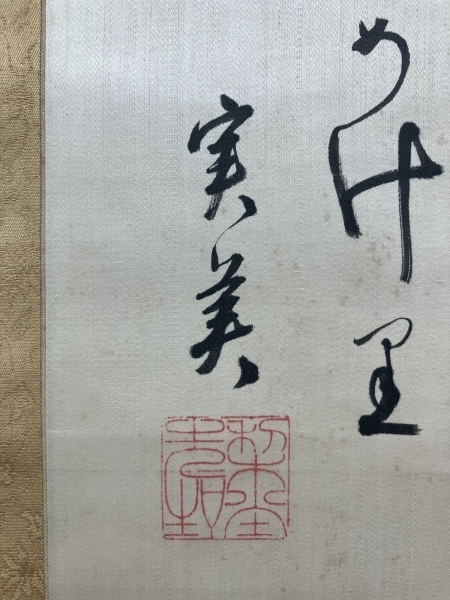 めけ里
実美